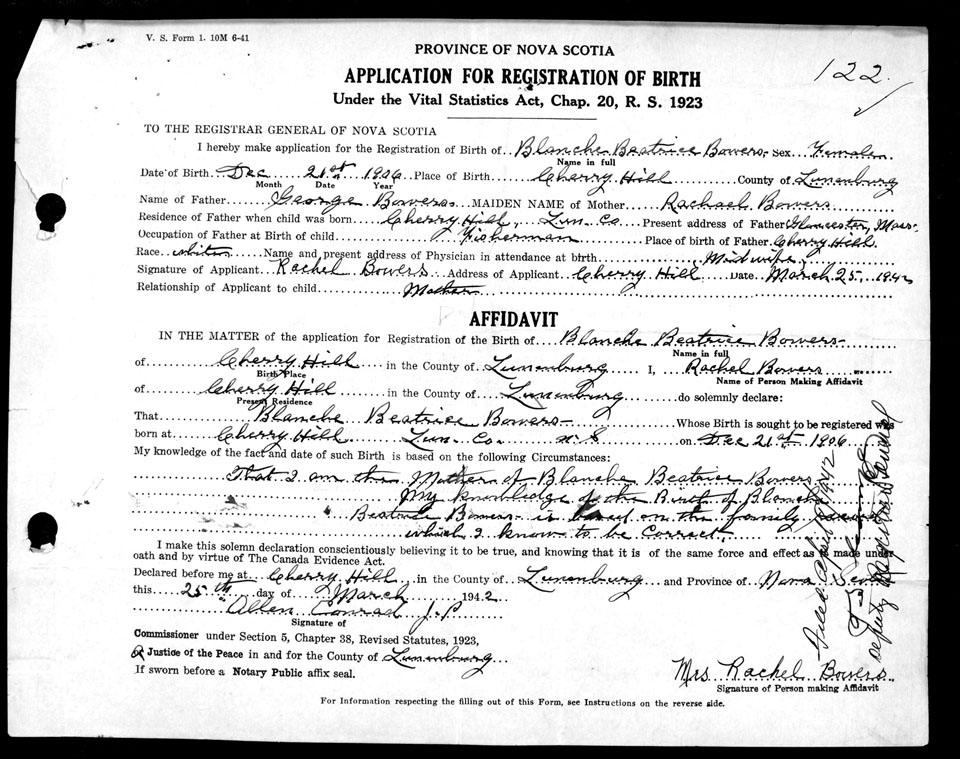 V. S. Form 1. 10M 6-41
PROVINCE OF NOVA SCOTIA
122
APPLICATION FOR REGISTRATION OF BIRTH
Under the Vital Statistics Act, Chap. 20, R. S. 1923
TO THE REGISTRAR GENERAL OF NOVA SCOTIA
I hereby make application for the Registration of Birth of Blanche Beatrice Bowers Sex Female
Name in full
Date of Birth Dec 21st 1906 Place of Birth Cherry Hill County of Lunenburg
Month Date Year
Name of Father George Bowers MAIDEN NAME of Mother Rachael Bowers
Residence of Father when child was born Cherry Hill, Lun. Co Present address of Father Gloucester, Mass.
Occupation of Father at Birth of child Fisherman Place of birth of Father Cherry Hill
Race white Name and present address of Physician in attendance at birth Midwife
Signature of Applicant Rachel Bowers Address of Applicant Cherry Hill Date March 25, 1942
Relationship of Applicant to child Mother
AFFIDAVIT
IN THE MATTER of the application for Registration of the Birth of Blanche Beatrice Bowers
Name in full
of Cherry Hill in the County of Lunenburg I, Rachel Bowers
Birth Place Name of Person Making Affidavit
of Cherry Hill in the County of Lunenburg do solemnly declare:
Present Residence
That Blanche Beatrice Bowers Whose Birth is sought to be registered was
born at Cherry Hill Lun. Co. N.S on Dec 21st 1906
My knowledge of the fact and date of such Birth is based on the following Circumstances:
That I am the Mother of Blanche Beatrice Bowers
My knowledge of the Birth of Blanche
Beatrice Bowers is based on the family record
which I know to be Correct.
I make this solemn declaration conscientiously believing it to be true, and knowing that it is of the same force and effect as if made under
oath and by virtue of The Canada Evidence Act.
Declared before me at Cherry Hill, in the County of Lunenburg and Province of Nova Scotia
this 25th day of March 1942
Allen Conrad J.P
Signature of
Commissioner under Section 5, Chapter 38, Revised Statutes, 1923,
Justice of the Peace in and for the County of Lunenburg
If sworn before a Notary Public affix seal.
Mrs Rachel Bowers
Signature of Person making Affidavit
For Information respecting the filling out of this Form, see Instructions on the reverse side.
Filed April 1942
Deputy Registrar General